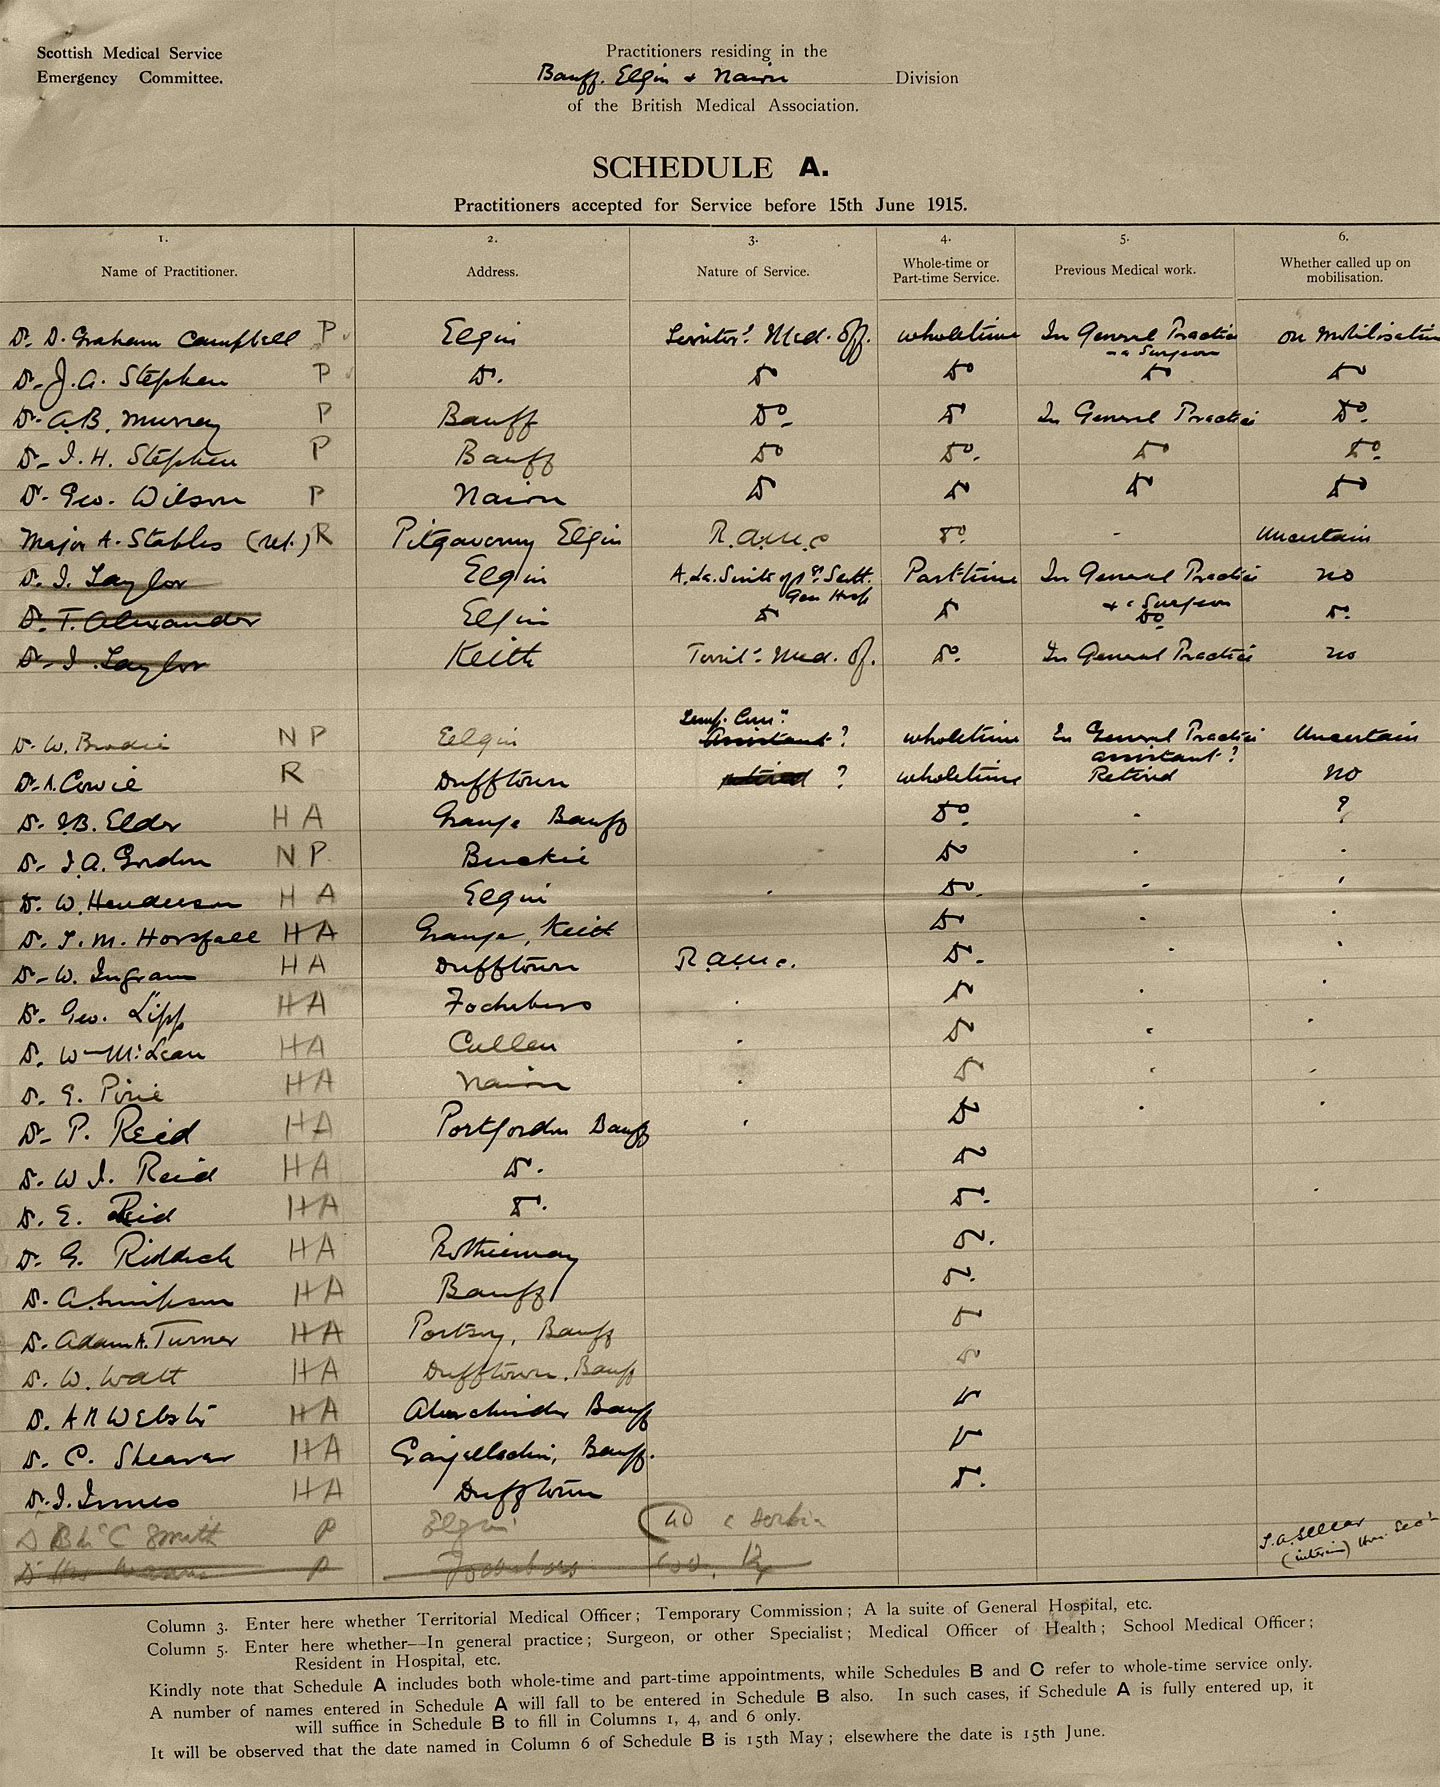 Scottish Medical Service
Emergency Committee.
Practitioners residing in the
Banff, Elgin & Nairn Division
of the British Medical Association.
SCHEDULE A.
Practitioners accepted for Service before 15th June 1915.
1. 2. 3. 4. 5. 6.
Name of Practitioner. Address. Nature of Service. Whole-time or Part-time Service. Previous Medical work. Whether called up on mobilisation.
Dr. D. Graham Campbell P Elgin Territorl. Med. Off. wholetime In General Practice on Mobilisation
& a Surgeon
Dr. J. A. Stephen P Do. Do Do Do Do
Dr. A. B. Murray P Banff Do. Do In General Practice Do.
Dr. I. H. Stephen P Banff Do Do. Do Do.
Dr. Geo. Wilson P Nairn Do Do Do Do
Major A. Stables (ret.) R Elgin R.A.M.C Do. - Uncertain
Dr. J. Taylor Elgin A. La. Suite Scott. Part-time In General Practice no
Gen Hosp & a Surgeon
Dr. T. Alexander Elgin Do Do Do Do.
Dr. J. Taylor Keith Territl. Med. Of. Do. In General Practice no
Temp. Comn.
Dr. W. Brodie N P Elgin Assistant ? wholetime In General Practice Uncertain
assistant ?
Dr. A. Cowie R Dufftown retired ? wholetime Retired no
Dr. J. B. Elder H A Grange Banff Do. ?
Dr. J. A. Gordon N P. Buckie Do
Dr. W. Henderson H A Elgin Do.
Dr. T. M. Horsfall H A Grange, Keith Do
Dr. W. Ingram H A Dufftown R.A.M.C. Do.
Dr. Geo. Lipp H A Fochabers Do
Dr. Wm McLean H A Cullen Do
Dr. G. Pirie H A Nairn Do
Dr. P. Reid H A Portgordon Banff Do
Dr. W J. Reid H A Do. Do
Dr. E. Reid H A Do. Do.
Dr. G. Riddoch H A Rothiemay Do.
Dr. A. Simpson H A Banff Do.
Dr. Adam A. Turner H A Portsoy, Banff Do
Dr. W. Watt H A Dufftown. Banff Do
Dr. A R Webster H A Aberchirder Banff Do
Dr. C. Shearer H A Craigellachie, Banff. Do
Dr. J. Innes H A Dufftown Do.
Smith P Elgin Serbia
P Fochabers
(interim) Hon. Secy
Column 3. Enter here whether Territorial Medical Officer; Temporary Commission; A la suite of General Hospital, etc.
Column 5. Enter here whether—In general practice; Surgeon, or other Specialist; Medical Officer of Health; School Medical Officer;
Resident in Hospital, etc.
Kindly note that Schedule A includes both whole-time and part-time appointments, while Schedules B and C refer to whole-time service only.
A number of names entered in Schedule A will fall to be entered in Schedule B also. In such cases, if Schedule A is fully entered up, it
will suffice in Schedule B to fill in Columns 1, 4, and 6 only.
It will be observed that the date named in Column 6 of Schedule B is 15th May; elsewhere the date is 15th June.